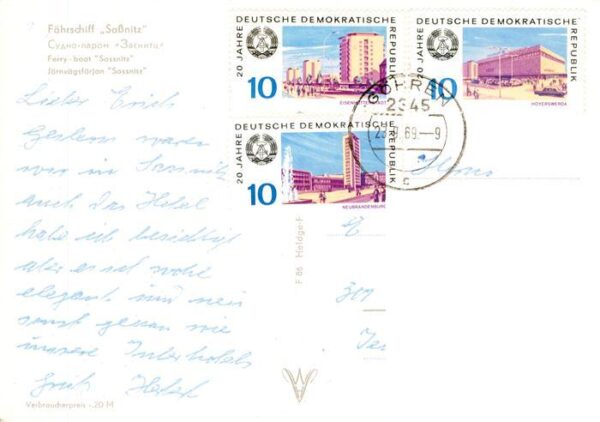 Fährschiff „Saßnitz"
Судно-паром «Засниц»
Ferry-boat "Sassnitz"
Järnvägsfärjan "Sassnitz"
Lieber Erich
Gestern waren
wir in Sassnitz
auch das Hotel
habe ich besichtigt
aber es ist wohl
elegant und nein
sonst genau wie
unsere Interhotels
Gruß
Verbraucherpreis -.20 M
F 86 Heldge-F
20 JAHRE
DEUTSCHE DEMOKRATISCHE
REPUBLIK
10
EISENHÜTTENSTADT
20 JAHRE
DEUTSCHE DEMOKRATISCHE
REPUBLIK
10
HOYERSWERDA
20 JAHRE
DEUTSCHE DEMOKRATISCHE
REPUBLIK
10
NEUBRANDENBURG
GÖHREN
2345
69.-9
c
Herrn